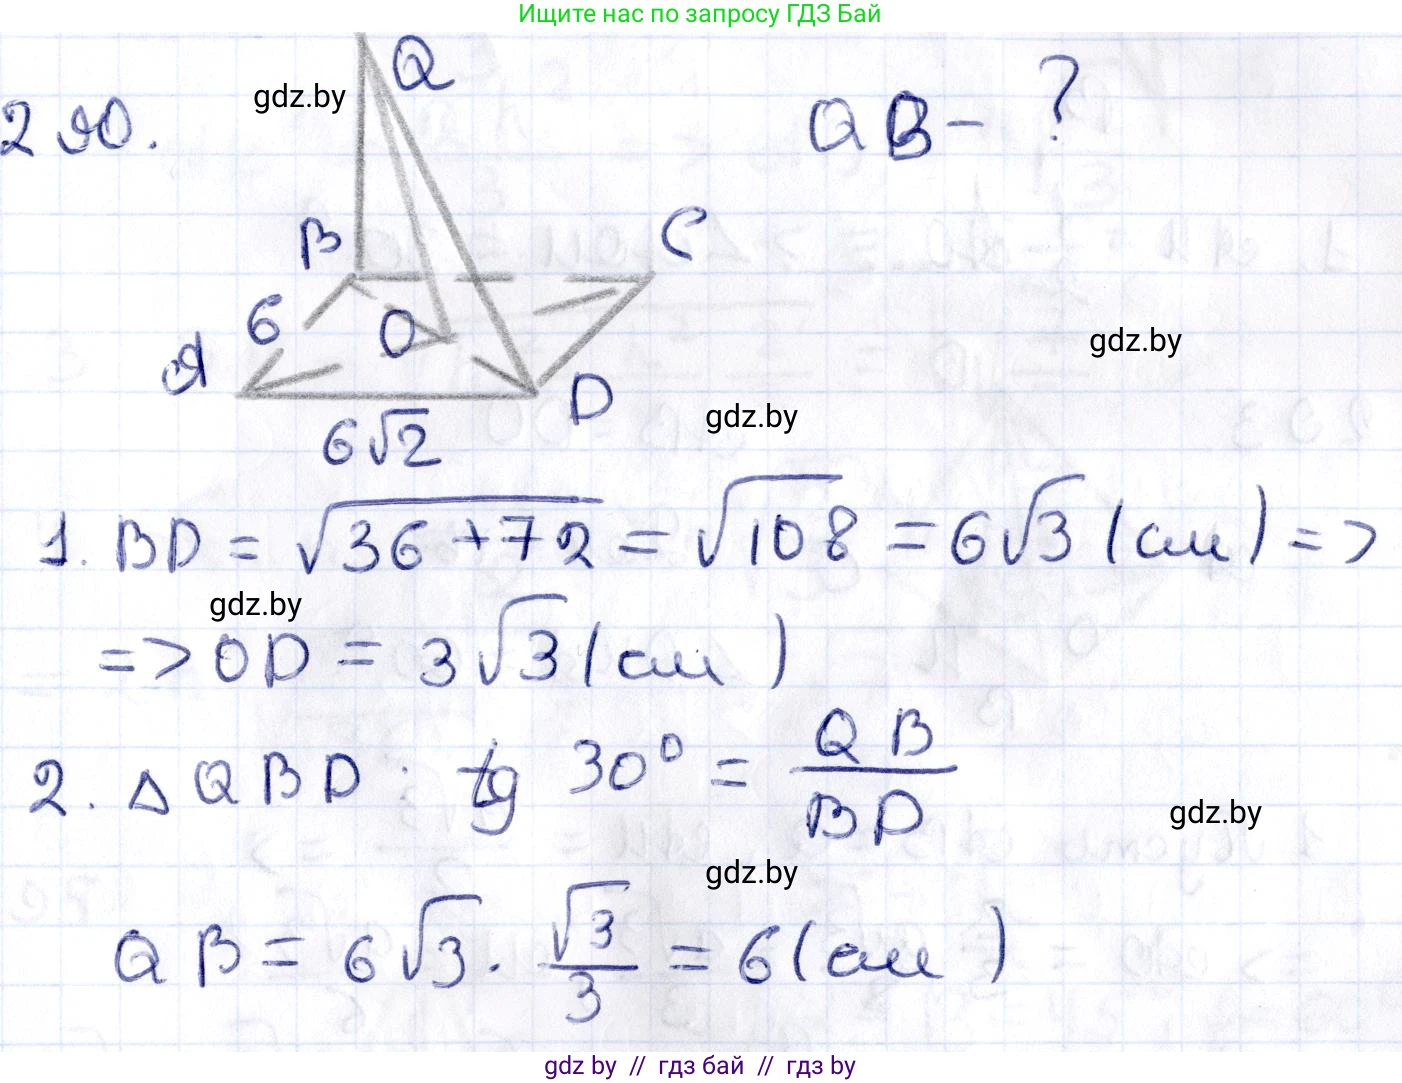 Ищите нас по запросу ГДЗ Бай
Q
gdz.by
290.
QB - ?
B
C
6
O
A
gdz.by
D
gdz.by
6√2
1. BD = √36+72 = √108 = 6√3 (см) =>
gdz.by
=> OD = 3√3 (см)
2. △QBD: tg 30° = QB/BD
gdz.by
gdz.by
QB = 6√3 · √3/3 = 6 (см)
gdz by // гдз бай // гдз by